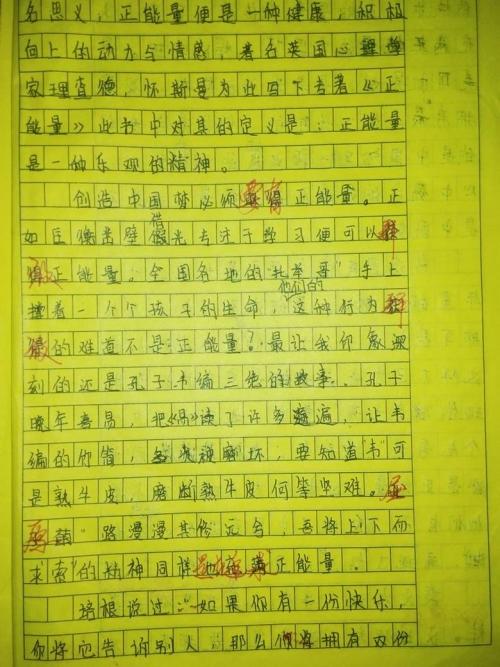 名思义，正能量便是一种健康，积极
向上的动力与情感，著名英国心理学
家理查德 怀斯曼为此写下专著《正
能量》此书中对其的定义是：正能量
是一种乐观的精神。
创造中国梦必须要有正能量。正
如匡衡凿壁借光专注于学习便可以释
放正能量。全国各地的"托举哥"手上
撑着一个个孩子的生命，他们的这种行为释
放的难道不是正能量？最让我印象深
刻的还是孔子韦编三绝的故事、孔子
晚年喜易，把读了许多遍，让韦
编的竹简，磨坏，要知道"韦"可
是熟牛皮，磨断熟牛皮何等坚难。屈
原"路漫漫其修远兮，吾将上下而
求索"的精神同样也是正能量．
培根说过："如果你有一份快乐，
你将它告诉别人，那么你将拥有两份